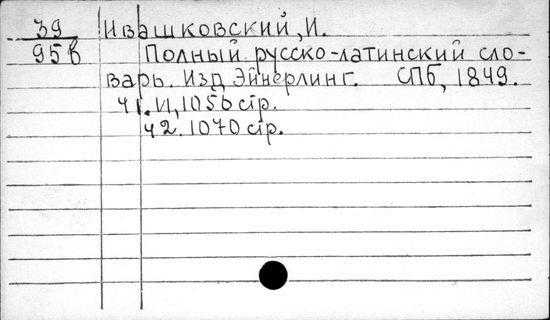 39 Ивашковский, И.
95в Полный русско-латинский сло-
варь. Изд Эйнерлинг. СПб, 1849.
ч 1. VI, 1056 стр.
ч 2. 1070 стр.